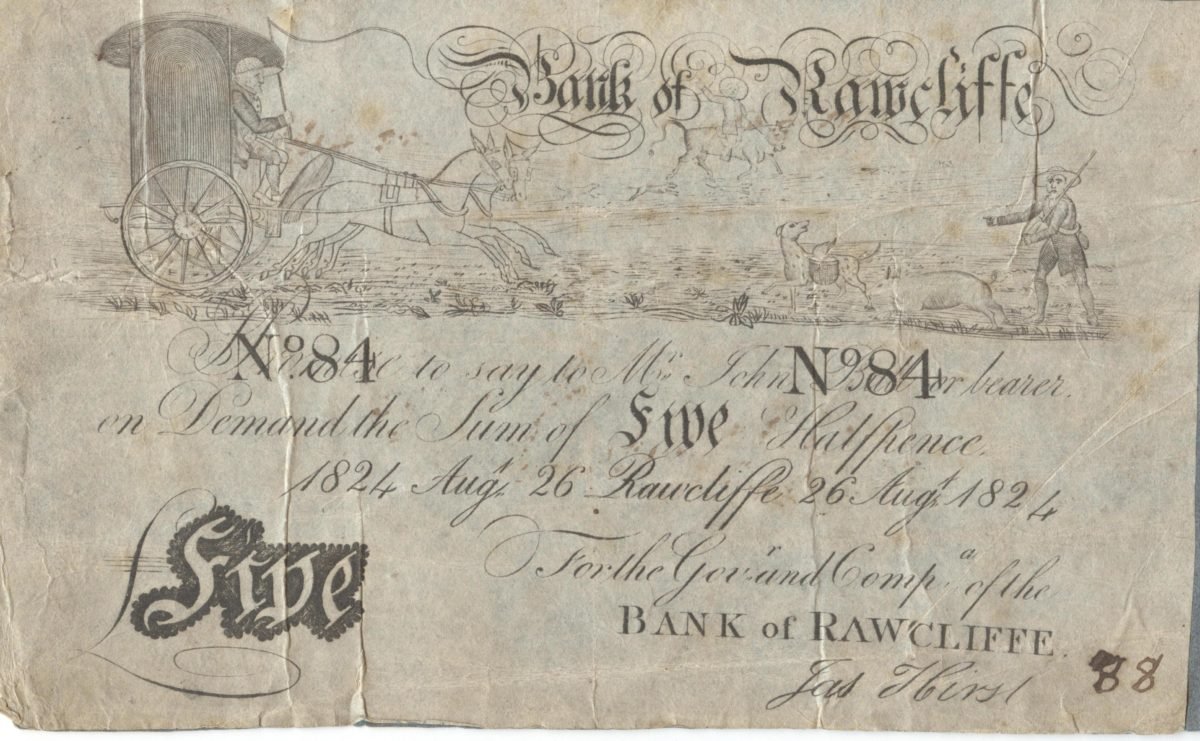 Bank of Rawcliffe
Nº 84 Nº 84
to say to Mr. John or bearer.
on Demand the Sum of Five Halfpence.
1824 Augt. 26 Rawcliffe 26 Augt. 1824
For the Govr. and Compa. of the
BANK of RAWCLIFFE.
Five
Jas Hirst
88